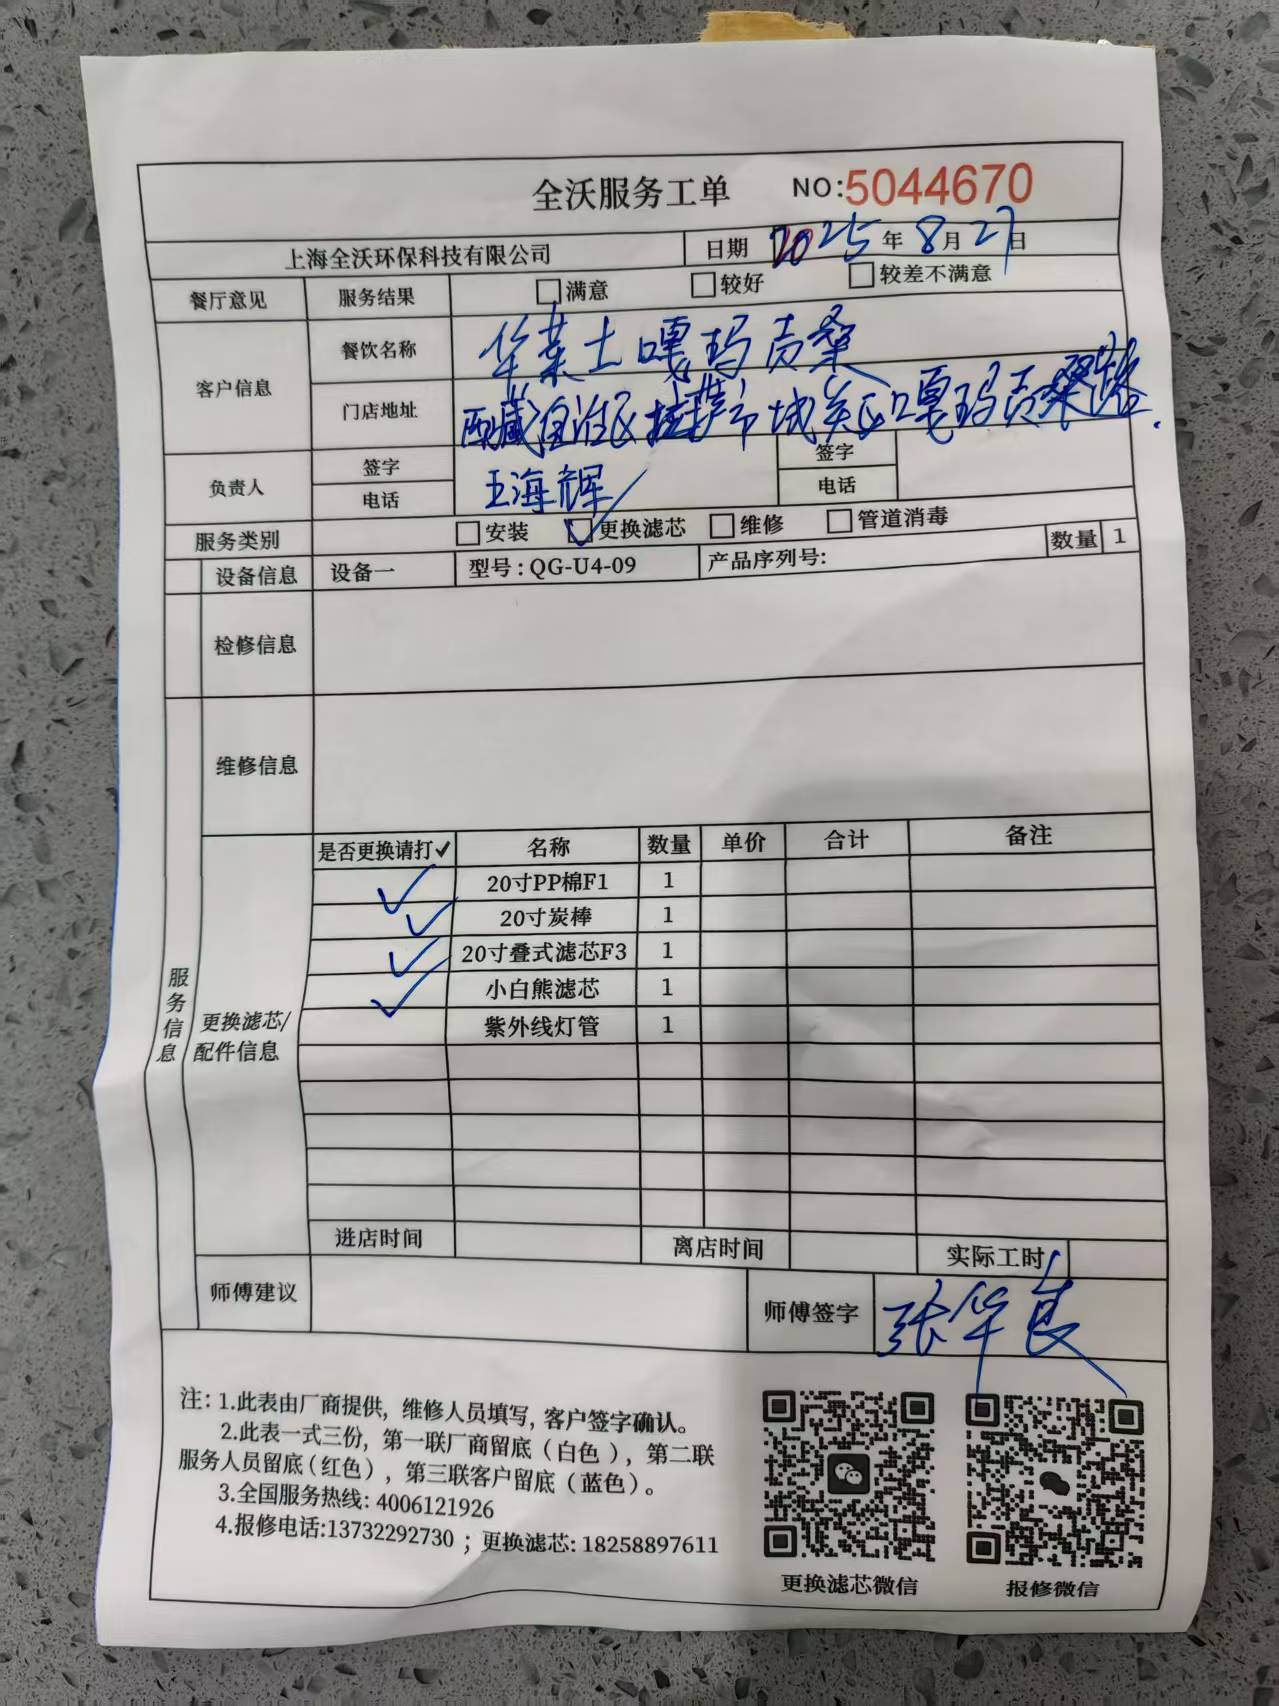 全沃服务工单 NO:5044670
上海全沃环保科技有限公司 日期 2025年8月27日
餐厅意见 服务结果 满意 较好 较差不满意
客户信息 餐饮名称 华莱士嘎玛贡桑
门店地址 西藏自治区拉萨市城关区嘎玛贡桑路.
负责人 签字 王海辉 签字
电话 电话
服务类别 安装 ✓更换滤芯 维修 管道消毒
设备信息 设备一 型号:QG-U4-09 产品序列号: 数量 1
检修信息
维修信息
服务信息
更换滤芯/配件信息
是否更换请打✓ 名称 数量 单价 合计 备注
✓ 20寸PP棉F1 1
✓ 20寸炭棒 1
✓ 20寸叠式滤芯F3 1
✓ 小白熊滤芯 1
紫外线灯管 1
进店时间 离店时间 实际工时
师傅建议 师傅签字 张华良
注: 1.此表由厂商提供, 维修人员填写, 客户签字确认。
2.此表一式三份, 第一联厂商留底(白色), 第二联
服务人员留底(红色), 第三联客户留底(蓝色)。
3.全国服务热线: 4006121926
4.报修电话:13732292730 ; 更换滤芯: 18258897611
更换滤芯微信 报修微信